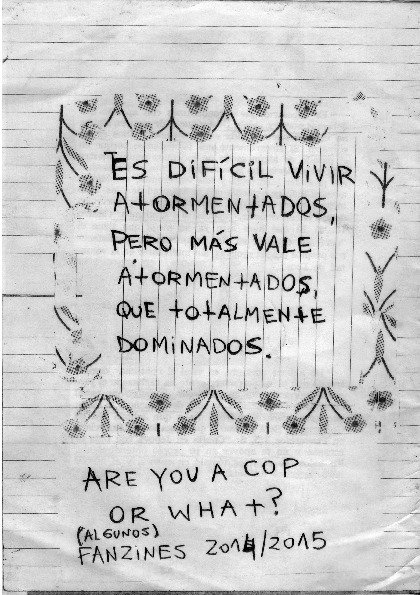 ES DIFÍCIL VIVIR
ATORMENTADOS,
PERO MÁS VALE
ATORMENTADOS,
QUE TOTALMENTE
DOMINADOS.
ARE YOU A COP
OR WHAT?
(ALGUNOS)
FANZINES 2014/2015